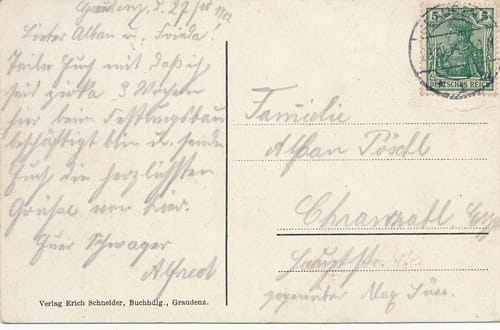 Graudenz, d. 27/
Lieber Alban u. Frieda!
Teile Euch mit daß ich
seit zirka 3 Wochen
hier beim Festungsbau
beschäftigt bin u. sende
Euch die herzlichsten
Grüße von hier.
Euer Schwager
Alfred
Verlag Erich Schneider, Buchhdlg., Graudenz.
5 5
DEUTSCHES REICH
Familie
Alban Pöschl
Hauptstr.
gegenüber